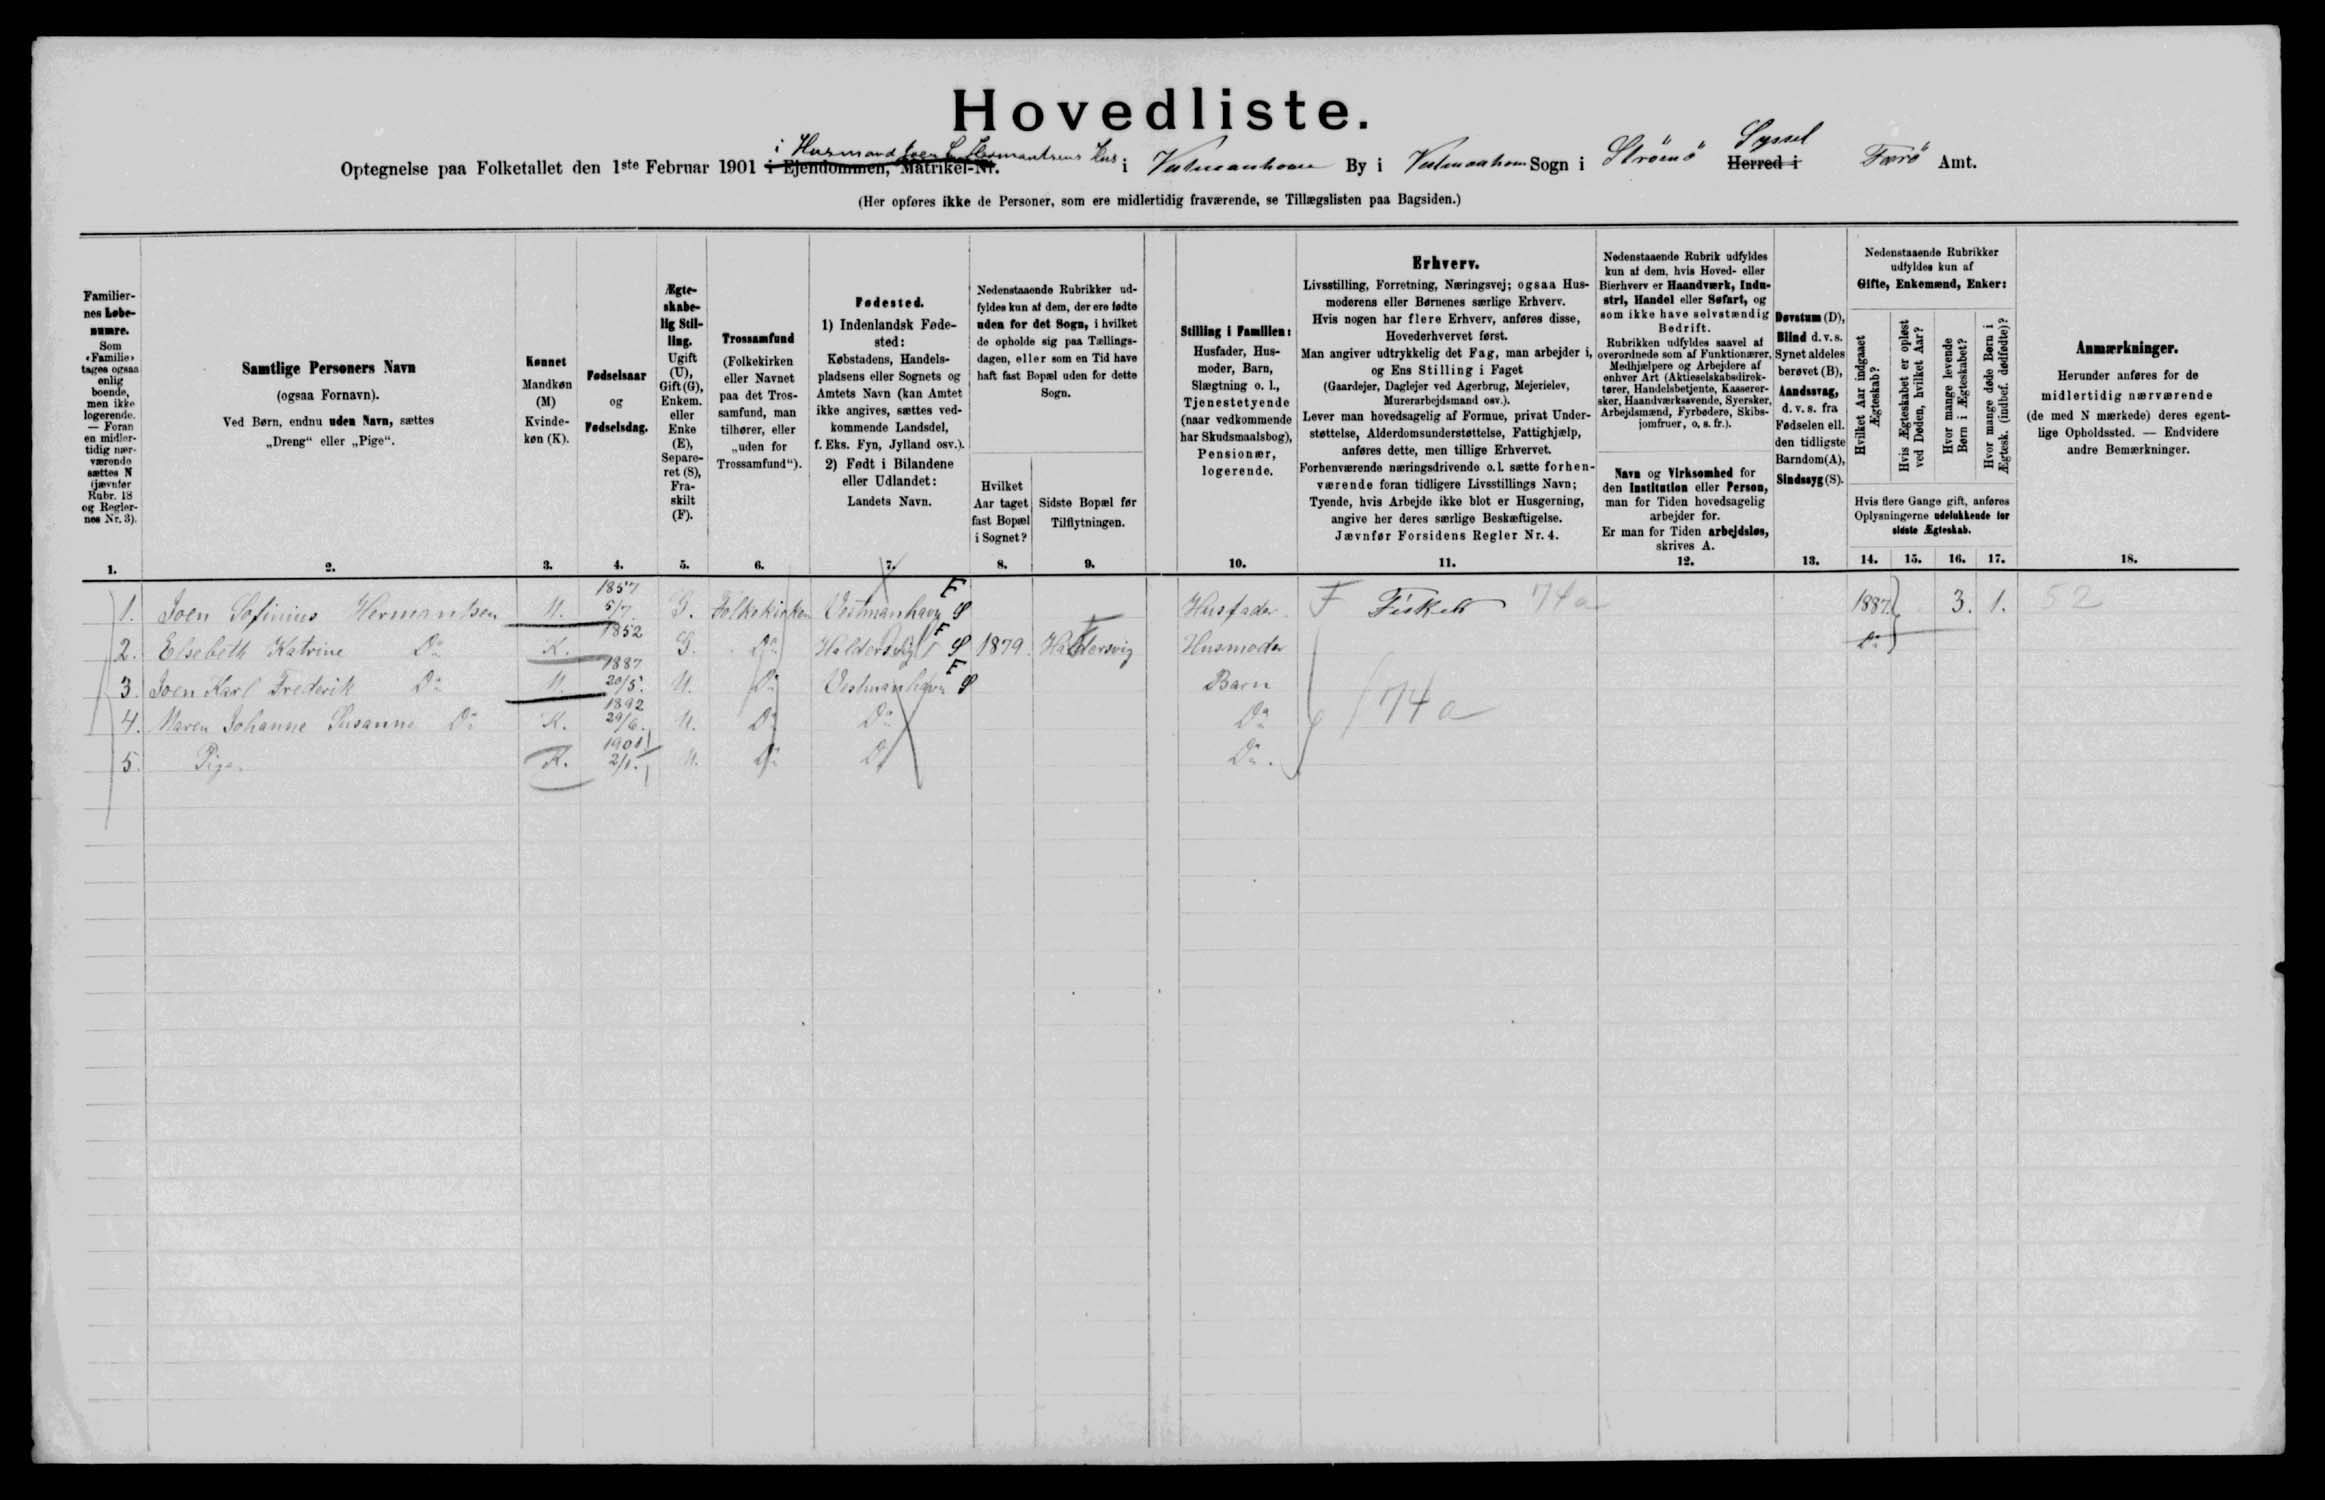 Hovedliste.
Optegnelse paa Folketallet den 1ste Februar 1901 i Ejendommen, Matrikel-Nr. i Husmand Joen S. Hermantsens Hus i Vestmanhavn By i Vestmanhavn Sogn i Strömö Syssel Herred i Færö Amt.
(Her opføres ikke de Personer, som ere midlertidig fraværende, se Tillægslisten paa Bagsiden.)
Familiernes Løbenumre.
Som «Familie» tages ogsaa enlig boende, men ikke logerende. — Foran en midlertidig nærværende sættes N (jævnfør Rubr. 18 og Reglernes Nr. 3).
Samtlige Personers Navn
(ogsaa Fornavn).
Ved Børn, endnu uden Navn, sættes
„Dreng“ eller „Pige“.
Kønnet
Mandkøn (M)
Kvindekøn (K).
Fødselsaar
og
Fødselsdag.
Ægteskabelig Stilling.
Ugift (U), Gift (G), Enkem. eller Enke (E), Separeret (S), Fraskilt (F).
Trossamfund
(Folkekirken eller Navnet paa det Trossamfund, man tilhører, eller „uden for Trossamfund“).
Fødested.
1) Indenlandsk Fødested:
Købstadens, Handelspladsens eller Sognets og Amtets Navn (kan Amtet ikke angives, sættes vedkommende Landsdel, f. Eks. Fyn, Jylland osv.).
2) Født i Bilandene eller Udlandet:
Landets Navn.
Nedenstaaende Rubrikker udfyldes kun af dem, der ere fødte uden for det Sogn, i hvilket de opholde sig paa Tællingsdagen, eller som en Tid have haft fast Bopæl uden for dette Sogn.
Hvilket Aar taget fast Bopæl i Sognet?
Sidste Bopæl før Tilflytningen.
Stilling i Familien:
Husfader, Husmoder, Barn, Slægtning o. l., Tjenestetyende (naar vedkommende har Skudsmaalsbog), Pensionær, logerende.
Erhverv.
Livsstilling, Forretning, Næringsvej; ogsaa Husmoderens eller Børnenes særlige Erhverv.
Hvis nogen har flere Erhverv, anføres disse, Hovederhvervet først.
Man angiver udtrykkelig det Fag, man arbejder i, og Ens Stilling i Faget
(Gaardejer, Daglejer ved Agerbrug, Mejerielev, Murerarbejdsmand osv.).
Lever man hovedsagelig af Formue, privat Understøttelse, Alderdomsunderstøttelse, Fattighjælp, anføres dette, men tillige Erhvervet.
Forhenværende næringsdrivende o. l. sætte forhenværende foran tidligere Livsstillings Navn;
Tyende, hvis Arbejde ikke blot er Husgerning, angive her deres særlige Beskæftigelse.
Jævnfør Forsidens Regler Nr. 4.
Nedenstaaende Rubrik udfyldes kun af dem, hvis Hoved- eller Bierhverv er Haandværk, Industri, Handel eller Søfart, og som ikke have selvstændig Bedrift.
Rubrikken udfyldes saavel af overordnede som af Funktionærer, Medhjælpere og Arbejdere af enhver Art (Aktieselskabsdirektører, Handelsbetjente, Kasserersker, Haandværkssvende, Syersker, Arbejdsmænd, Fyrbødere, Skibsjomfruer, o. s. fr.).
Navn og Virksomhed for den Institution eller Person, man for Tiden hovedsagelig arbejder for.
Er man for Tiden arbejdsløs, skrives A.
Døvstum (D), Blind d. v. s. Synet aldeles berøvet (B), Aandssvag, d. v. s. fra Fødselen ell. den tidligste Barndom (A), Sindssyg (S).
Nedenstaaende Rubrikker udfyldes kun af
Gifte, Enkemænd, Enker:
Hvilket Aar indgaaet Ægteskab?
Hvis Ægteskabet er opløst ved Døden, hvilket Aar?
Hvor mange levende Børn i Ægteskabet?
Hvor mange døde Børn i Ægtesk. (indbef. dødfødte)?
Hvis flere Gange gift, anføres Oplysningerne udelukkende for sidste Ægteskab.
Anmærkninger.
Herunder anføres for de midlertidig nærværende (de med N mærkede) deres egentlige Opholdssted. — Endvidere andre Bemærkninger.
1. 2. 3. 4. 5. 6. 7. 8. 9. 10. 11. 12. 13. 14. 15. 16. 17. 18.
1. Joen Sofinius Hermantsen M. 1857 5/7. G. Folkekirken Vestmanhavn F S Husfader F Fisker 74a 1887. 3. 1. 52
2. Elsebeth Katrine Do K. 1852 G. Do Haldersvig F S 1879. Haldersvig Husmoder Do
3. Joen Karl Frederik Do M. 1887 20/5. U. Do Vestmanhavn F S Barn
4. Maren Johanne Susanne Do K. 1892 29/6. U. Do Do Do 74a
5. Pige. K. 1901 2/1. U. Do Do Do.